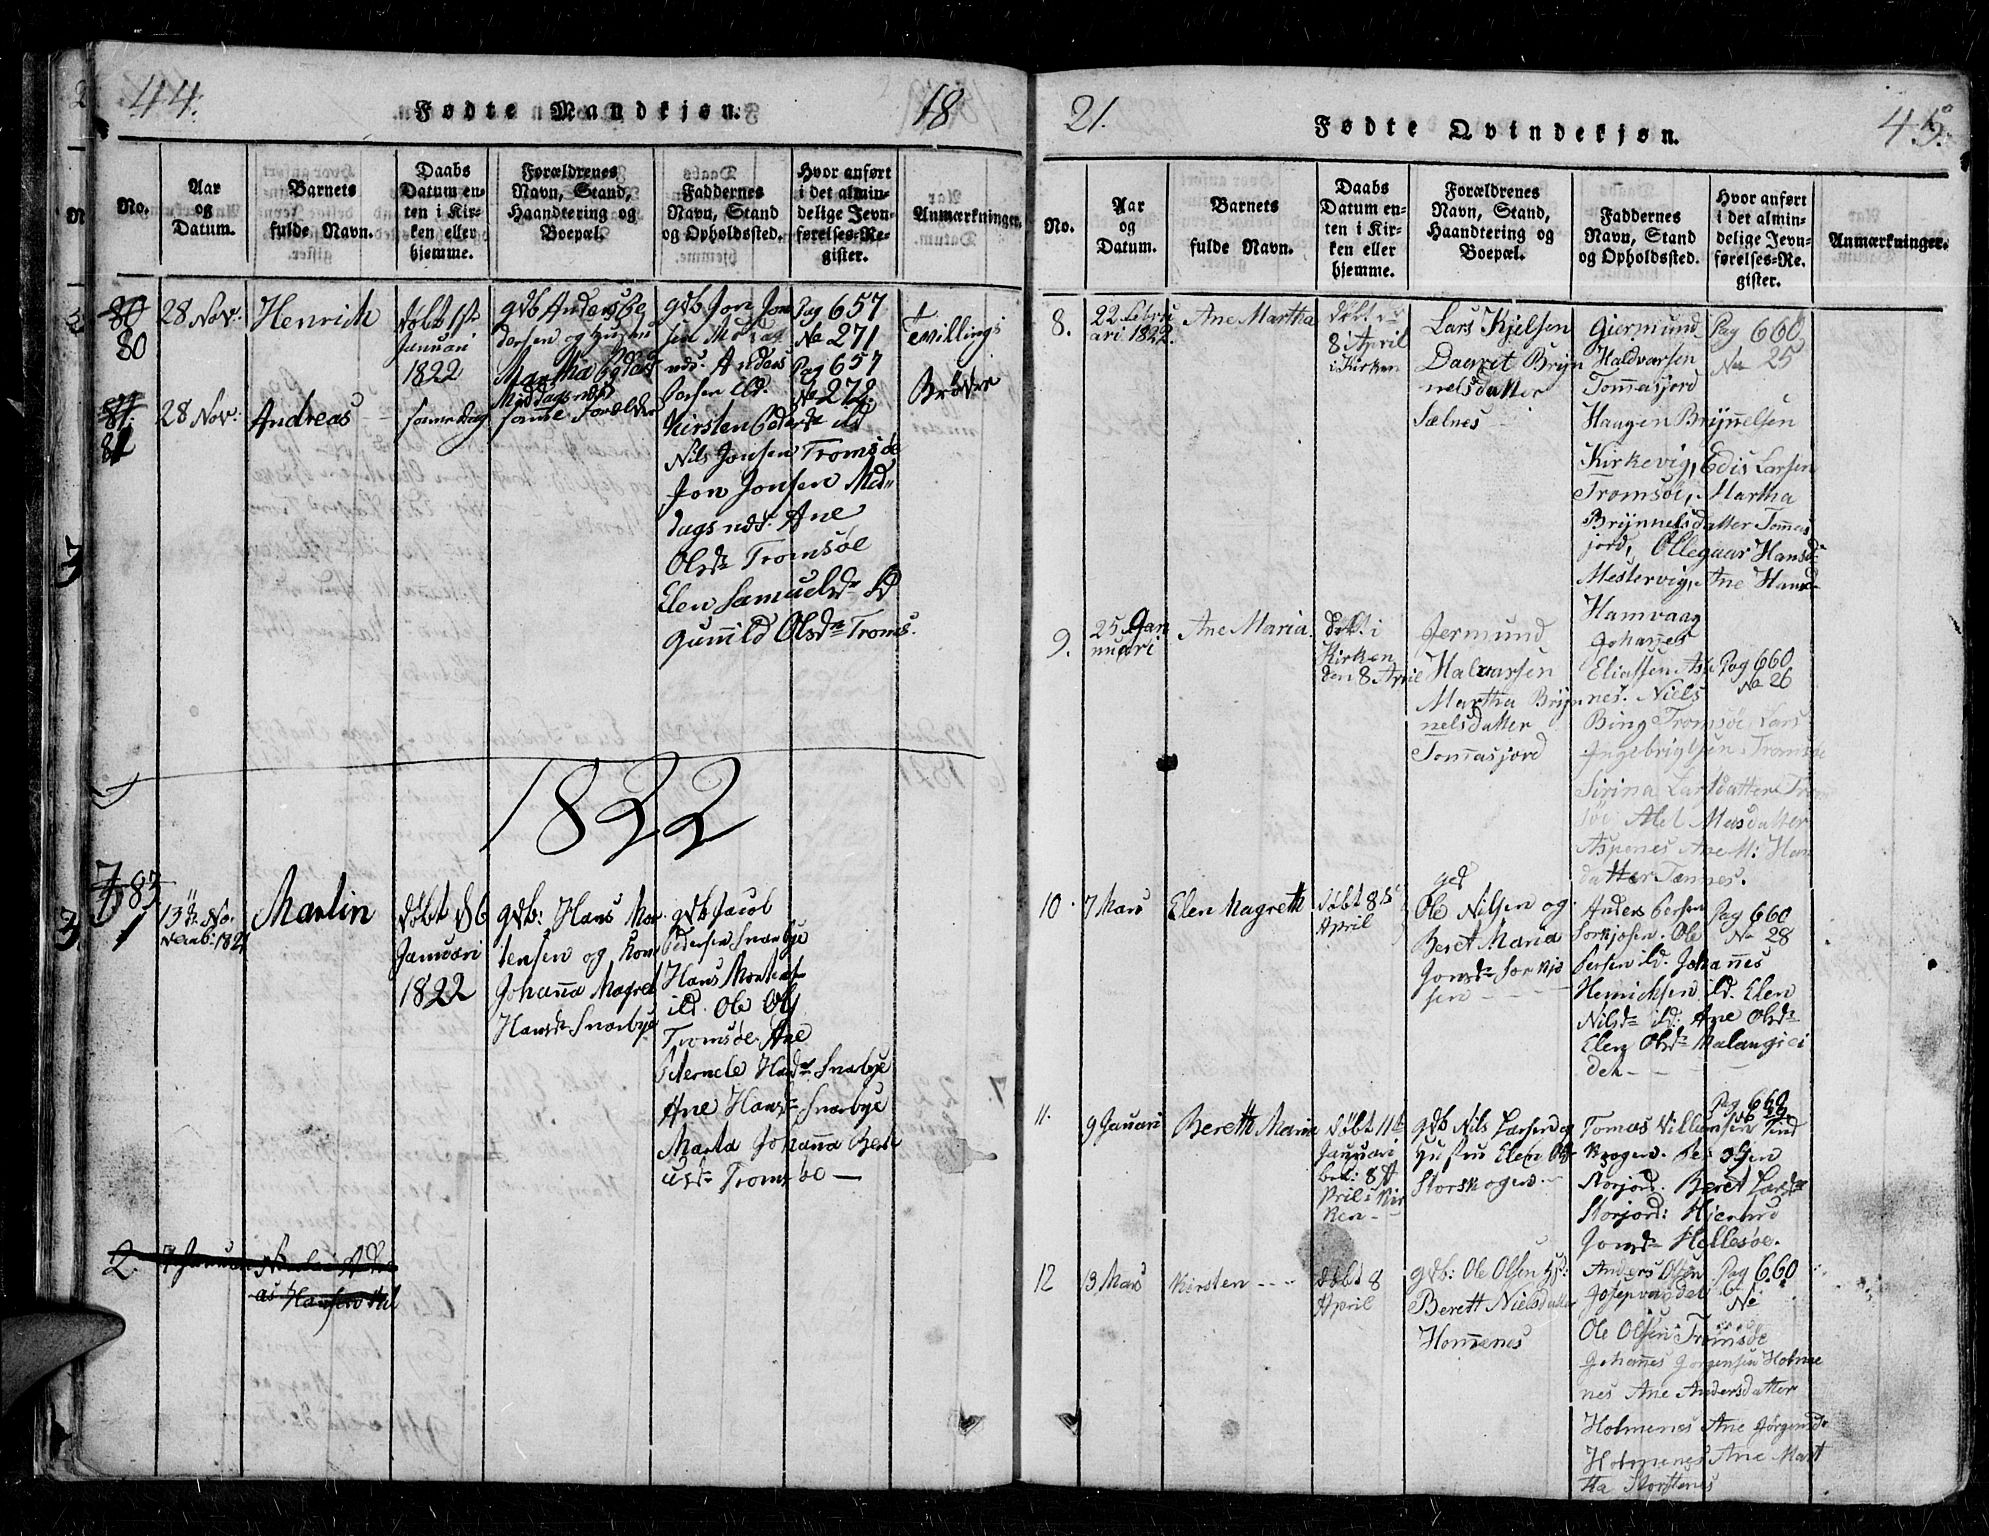 44.
Fødte Mandkjøn.
18
No.
Aar
og
Datum.
Barnets
fulde Navn.
Daabs
Datum en-
ten i Kir-
ken eller
hjemme.
Forældrenes
Navn, Stand,
Haandtering og
Boepæl.
Faddernes
Navn, Stand
og Opholdssted.
Hvor anført
i det almin-
delige Jevn-
førelses-Re-
gister.
Anmærkninger.
80
80
28 Nov:
Henrich
døbt 1ste
Januari
1822
gdb Anders
dersen og Hustru
Martha
Middagsnæs
gdb Jon Jon
sen
Anders
Pag 657
No 271
Tvillings
Brødre
81
28 Nov:
Andreas
samme Dag
samme Forælder
Pag 657
No 272
Kirsten Pedersdr ild
Nils Jonsen Tromsøe
Jon Jonsen Mid-
dagsnæs. Ane
Olsdr Tromsøe
Elen Samuelsdr ild
Gunnild Olsdr Troms.
1822
83
1
13de No-
vemb: 1821
Martin
døbt d 6
Januari
1822
gdb: Hans Mor
tensen og Kone
Johanna Magret
Hansdr Snarbye
gdb Jacob
Pedersen Snarbye
Hans Mortens
ild. Ole Ols
Tromsøe. Ane
Pernele Hansdr Snarbye
Ane Hansdr Snarbye
Marta Johanna Bert
elsdr Tromsøe —
2.
21.
Fødte Qvindekjøn.
45.
No.
Aar
og
Datum.
Barnets
fulde Navn.
Daabs
Datum en-
ten i Kir-
ken eller
hjemme.
Forældrenes
Navn, Stand,
Haandtering og
Boepæl.
Faddernes
Navn, Stand
og Opholdssted.
Hvor anført
i det almin-
delige Jevn-
førelses-Re-
gister.
Anmærkninger.
8.
22 Febru
ari 1822.
Ane Martha
Døbt
8 April
i Kirken
Lars Kjelsen
Daaret Bryn
nelsdatter
Sælnes
Giermund
Haldvarsen
Tommasjord
Haagen Brynnelsen
Kirkevig, Edis Larsen
Tromsøe, Martha
Brynnelsdatter Tomas
jord, Ollegaar Hansd
Mestervig, Ane Hansd
Hamvaag
Pag 660
No 25
9.
25 Jan
nuari
Ane Maria
Døbt i
Kirken
den 8 April
Jermund
Halvarsen
Martha Bryn
nelsdatter
Tommasjord
Johannes
Eliassen Asp
nes. Niels
Bing Tromsøe Lars
Ingebrigtsen Tromsøe
Sirina Larsdatter Trom
søe Alel Madsdatter
Aspenes Ane M: Han
datter Tennes.
Pag 660
No 26
10
7 Mars
Elen Magreth
døbt 8de
April
gd
Ole Nilsen og
Beret Maria
Jonsdr Sorkjo
sen
Anders Persen
Sorkjosen. Ole
Persen ild. Johannes
Henrichsen ild. Elen
Nilsdr ild: Ane Olsdr
Elen Olsdr Malangsei
det
Pag 660
No 28
11.
9 Januari
Bereth Maria
døbt 11te
Januari
bek: 8 A
pril i Kir
ken
gdb Nils Larsen og
Hustru Elen Ols
Storskogen.
Tomas Villumsen Tind
skogen. Per Olsen
Storjord. Beret Larsdr
Storjord:
Jonsdr Hellesøe.
Pag 660
No 29
12
3 Mars
Kirsten
døbt 8
April
gdb: Ole Olsen
Berett Nielsdatter
Hommenes
Anders Olsen
Josepvandet
Ole Olsen Tromsøe
Johannes Jørgensen Holme
nes Ane Andersdatter
Holmenes Ane Jørgensdr
Holmenes Ane Mart
ha Storstenes
Pag 660
No